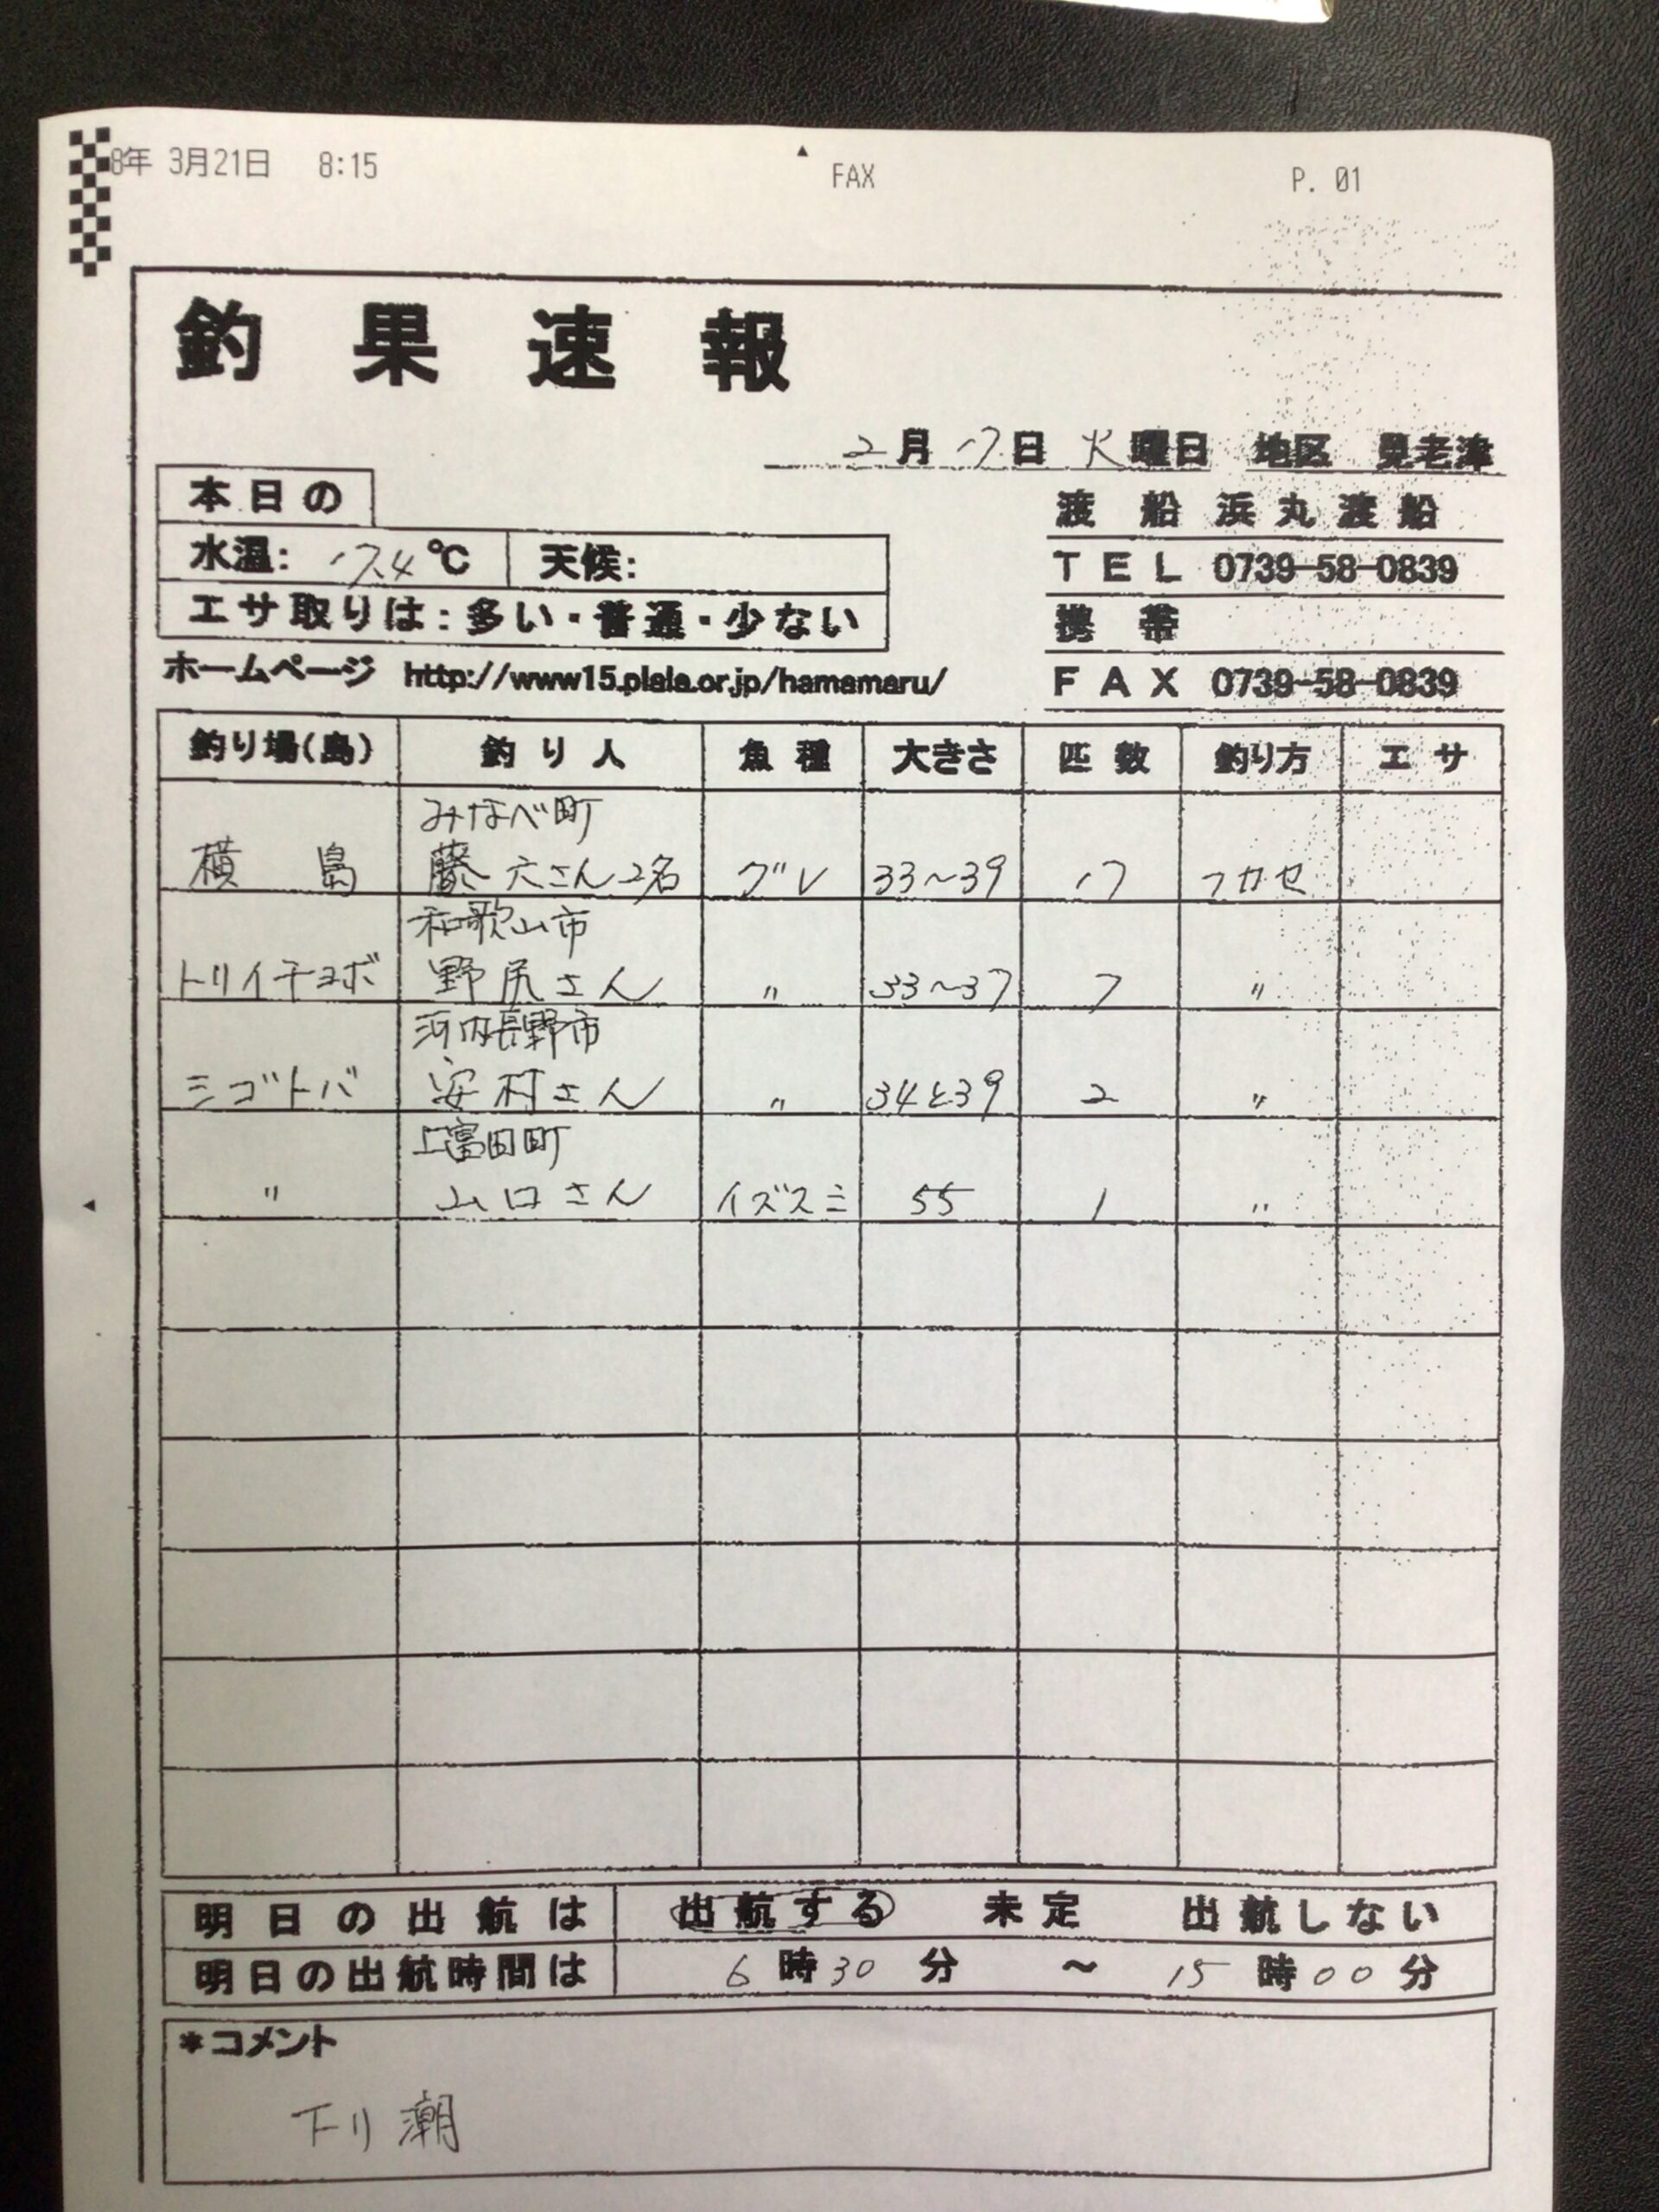 8年 3月21日 8:15 FAX P. 01
釣果速報
2月17日 火曜日 地区 見老津
本日の
渡船 浜丸渡船
水温: 17.4℃ 天候:
TEL 0739-58-0839
エサ取りは:多い・普通・少ない
携帯
ホームページ http://www15.plala.or.jp/hamamaru/
FAX 0739-58-0839
釣り場(島) 釣り人 魚種 大きさ 匹数 釣り方 エサ
みなべ町
横島 藤六さん2名 グレ 33~39 17 フカセ
和歌山市
トリイチョボ 野尻さん 〃 33~37 7 〃
河内長野市
シゴトバ 安村さん 〃 34と39 2 〃
上富田町
〃 山口さん イズスミ 55 1 〃
明日の出航は 出航する 未定 出航しない
明日の出航時間は 6時30分 ~ 15時00分
*コメント
下り潮